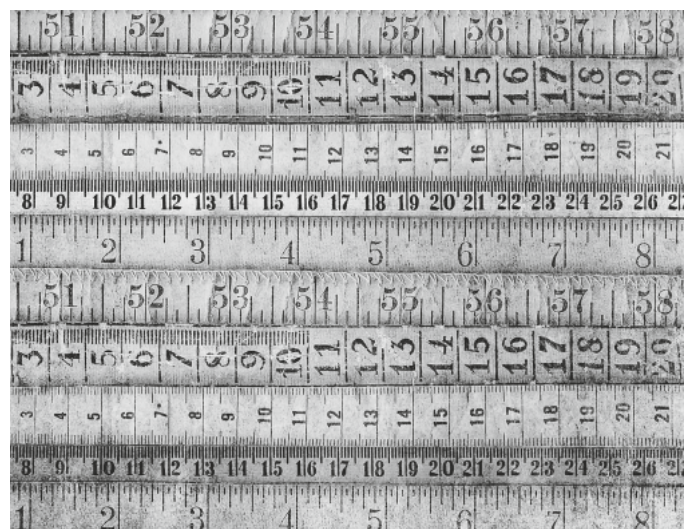 51 52 53 54 55 56 57 58
3 4 5 6 7 8 9 10 11 12 13 14 15 16 17 18 19 20
3 4 5 6 7 8 9 10 11 12 13 14 15 16 17 18 19 20 21
8 9 10 11 12 13 14 15 16 17 18 19 20 21 22 23 24 25 26
1 2 3 4 5 6 7 8
51 52 53 54 55 56 57 58
3 4 5 6 7 8 9 10 11 12 13 14 15 16 17 18 19 20
3 4 5 6 7 8 9 10 11 12 13 14 15 16 17 18 19 20 21
8 9 10 11 12 13 14 15 16 17 18 19 20 21 22 23 24 25 26
1 2 3 4 5 6 7 8